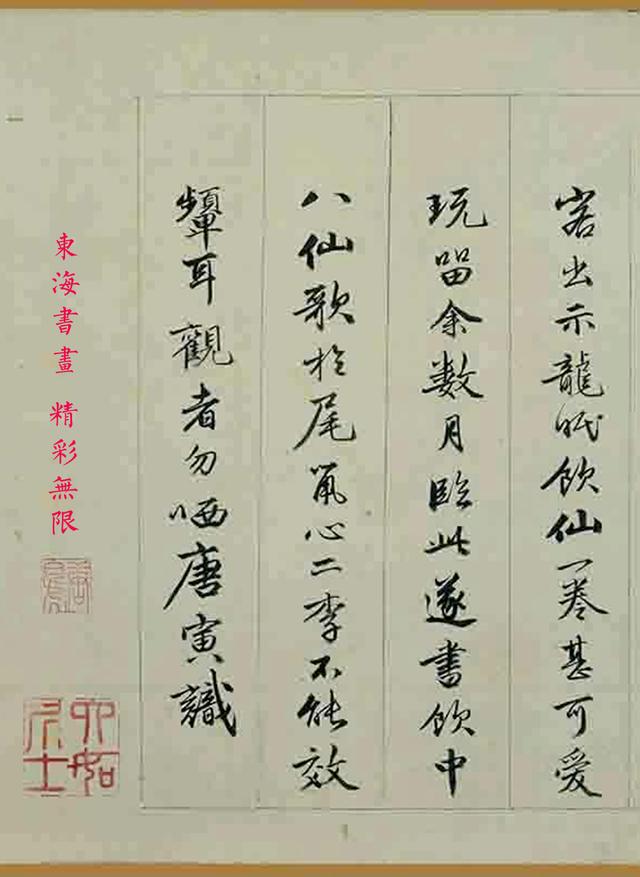 客出示龍眠飲仙一卷甚可愛
玩留余數月臨此遂書飲中
八仙歌於尾心二李不能效
顰耳觀者勿哂唐寅識
東海書畫 精彩無限
六如居士